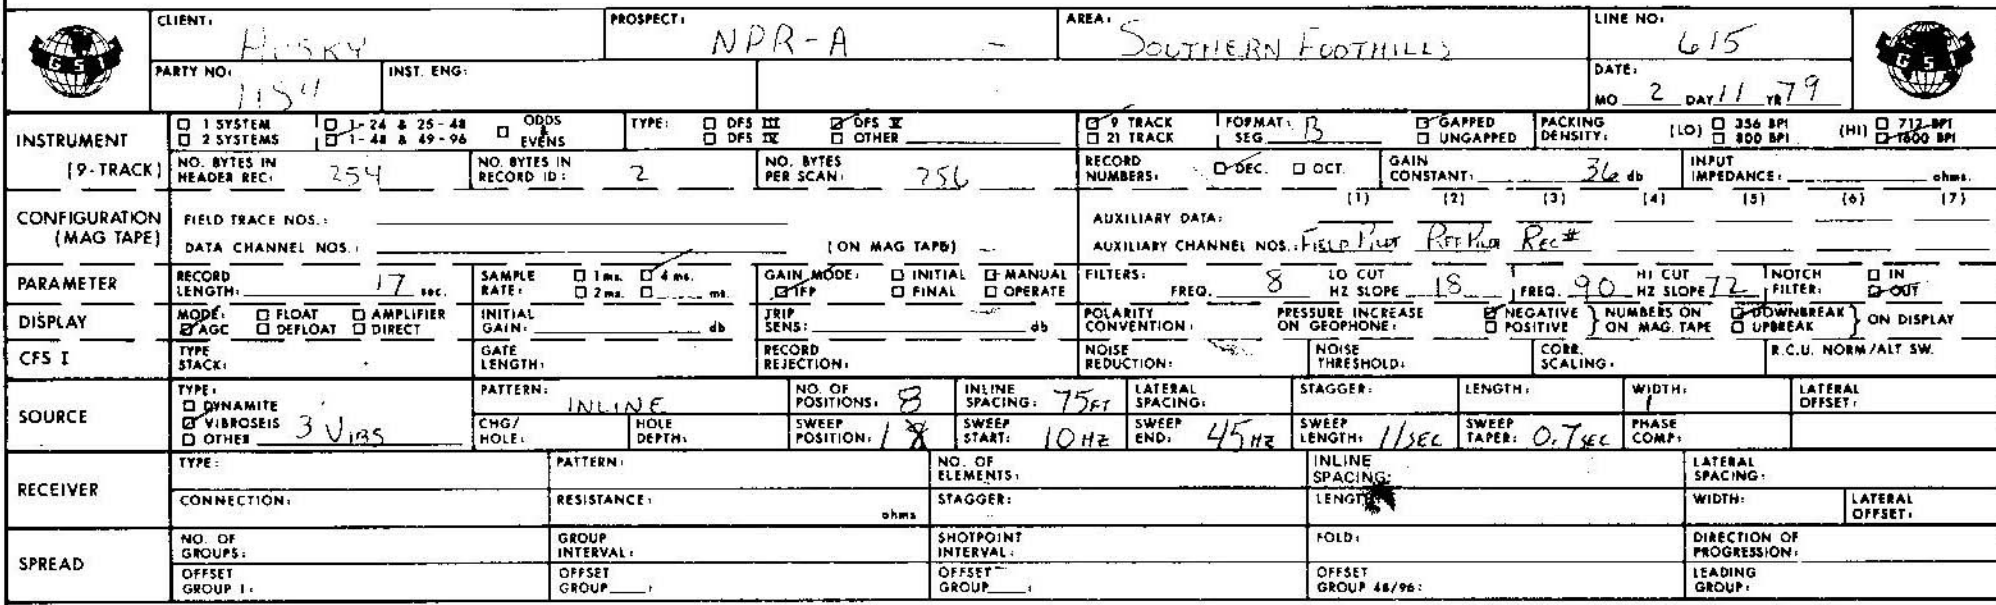 CLIENT: HUSKY PROSPECT: NPR-A - AREA: SOUTHERN FOOTHILLS LINE NO: 615
GSI GSI
PARTY NO: 1154 INST. ENG: DATE:
MO 2 DAY 11 YR 79
INSTRUMENT
(9-TRACK)
□ 1 SYSTEM □ 1-24 & 25-48 □ ODDS & EVENS TYPE: □ DFS III ☑ DFS V ☑ 9 TRACK FORMAT: ☑ GAPPED PACKING DENSITY: (LO) □ 356 BPI (HI) □ 712 BPI
□ 2 SYSTEMS ☑ 1-48 & 49-96 □ DFS IV □ OTHER □ 21 TRACK SEG B □ UNGAPPED □ 800 BPI ☑ 1600 BPI
NO. BYTES IN HEADER REC: 254 NO. BYTES IN RECORD ID: 2 NO. BYTES PER SCAN: 256 RECORD NUMBERS: ☑ DEC. □ OCT. GAIN CONSTANT: 36 db INPUT IMPEDANCE: ohms.
CONFIGURATION
(MAG TAPE)
(1) (2) (3) (4) (5) (6) (7)
FIELD TRACE NOS.: AUXILIARY DATA:
DATA CHANNEL NOS.: (ON MAG TAPE) AUXILIARY CHANNEL NOS.: FIELD PILOT REF PILOT REC#
PARAMETER
RECORD LENGTH: 17 sec. SAMPLE RATE: □ 1 ms. ☑ 4 ms. □ 2 ms. □ ms. GAIN MODE: □ INITIAL □ MANUAL ☑ IFP □ FINAL □ OPERATE FILTERS: FREQ. 8 LO CUT HZ SLOPE 18 FREQ. 90 HI CUT HZ SLOPE 72 NOTCH FILTER: □ IN ☑ OUT
DISPLAY
MODE: □ FLOAT □ AMPLIFIER ☑ AGC □ DEFLOAT □ DIRECT INITIAL GAIN: db TRIP SENS: db POLARITY CONVENTION: PRESSURE INCREASE ON GEOPHONE: ☑ NEGATIVE □ POSITIVE } NUMBERS ON ON MAG. TAPE ☑ DOWNBREAK □ UPBREAK } ON DISPLAY
CFS I
TYPE STACK: GATE LENGTH: RECORD REJECTION: NOISE REDUCTION: NOISE THRESHOLD: CORR. SCALING: R.C.U. NORM/ALT SW.
SOURCE
TYPE: PATTERN: INLINE NO. OF POSITIONS: 8 INLINE SPACING: 75FT LATERAL SPACING: STAGGER: LENGTH: WIDTH: LATERAL OFFSET:
□ DYNAMITE
☑ VIBROSEIS
□ OTHER 3 VIBS
CHG/HOLE: HOLE DEPTH: SWEEP POSITION: 1 SWEEP START: 10 HZ SWEEP END: 45 HZ SWEEP LENGTH: 11 SEC SWEEP TAPER: 0.7 SEC PHASE COMP:
RECEIVER
TYPE: PATTERN: NO. OF ELEMENTS: INLINE SPACING: LATERAL SPACING:
CONNECTION: RESISTANCE: ohms STAGGER: LENGTH WIDTH: LATERAL OFFSET:
SPREAD
NO. OF GROUPS: GROUP INTERVAL: SHOTPOINT INTERVAL: FOLD: DIRECTION OF PROGRESSION:
OFFSET GROUP 1: OFFSET GROUP : OFFSET GROUP : OFFSET GROUP 48/96: LEADING GROUP: